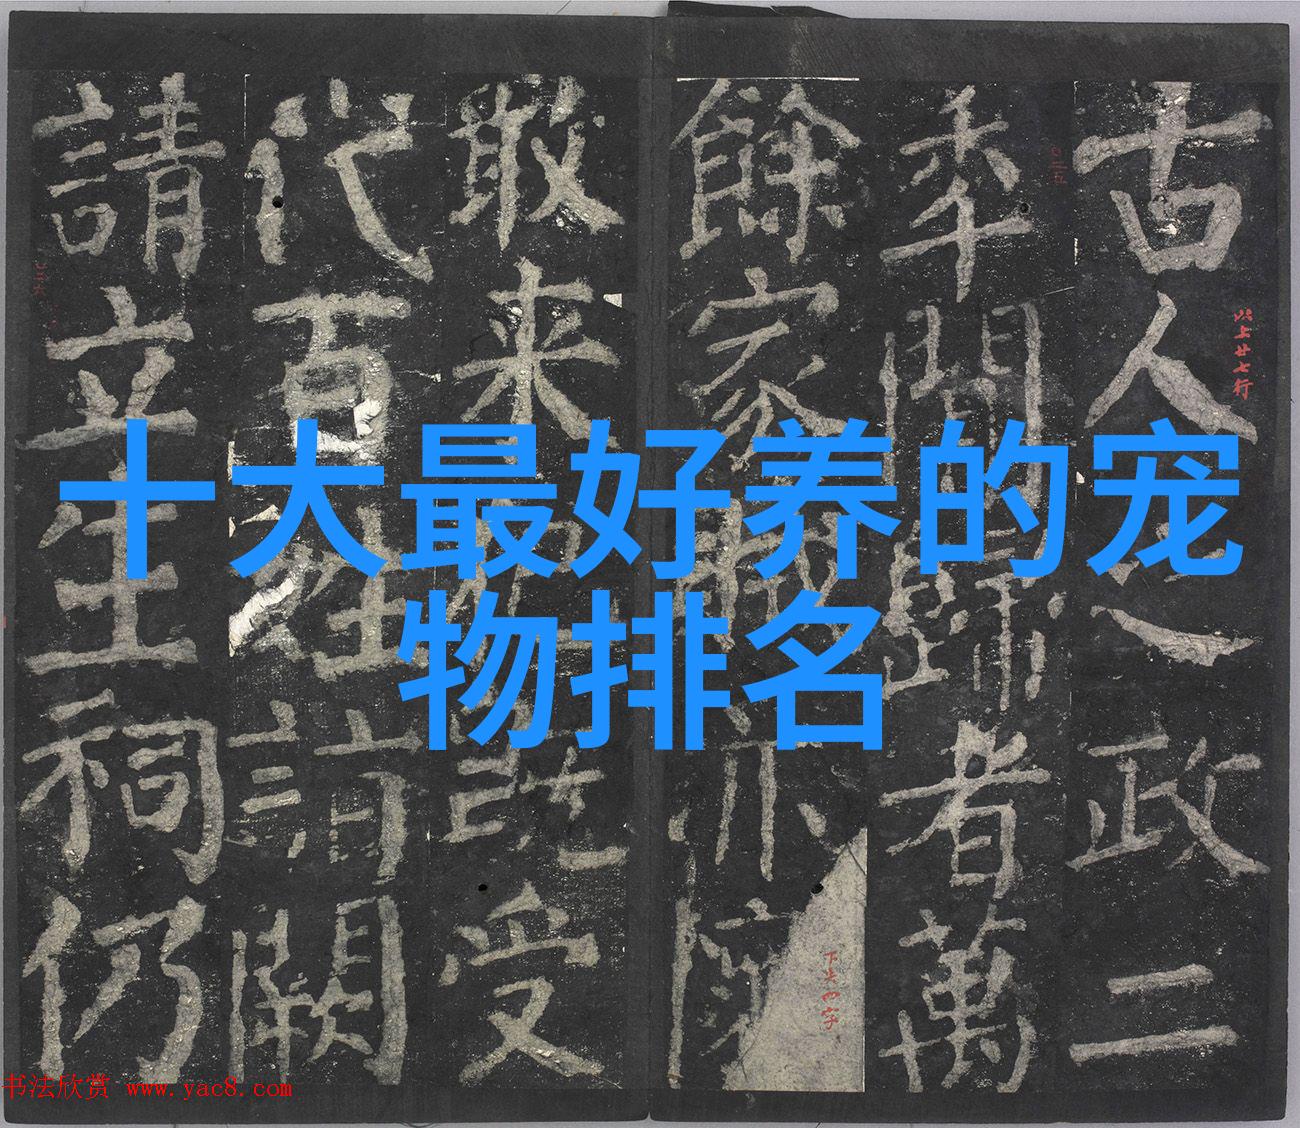 十大最好养的宠
物排名
古人之政二
以上廿七行
年間歸者萬
餘家賊亦懷
下失四字
敢来犯既受
代百姓詣闕
請立生祠仍
书法欣赏 www.yac8.com